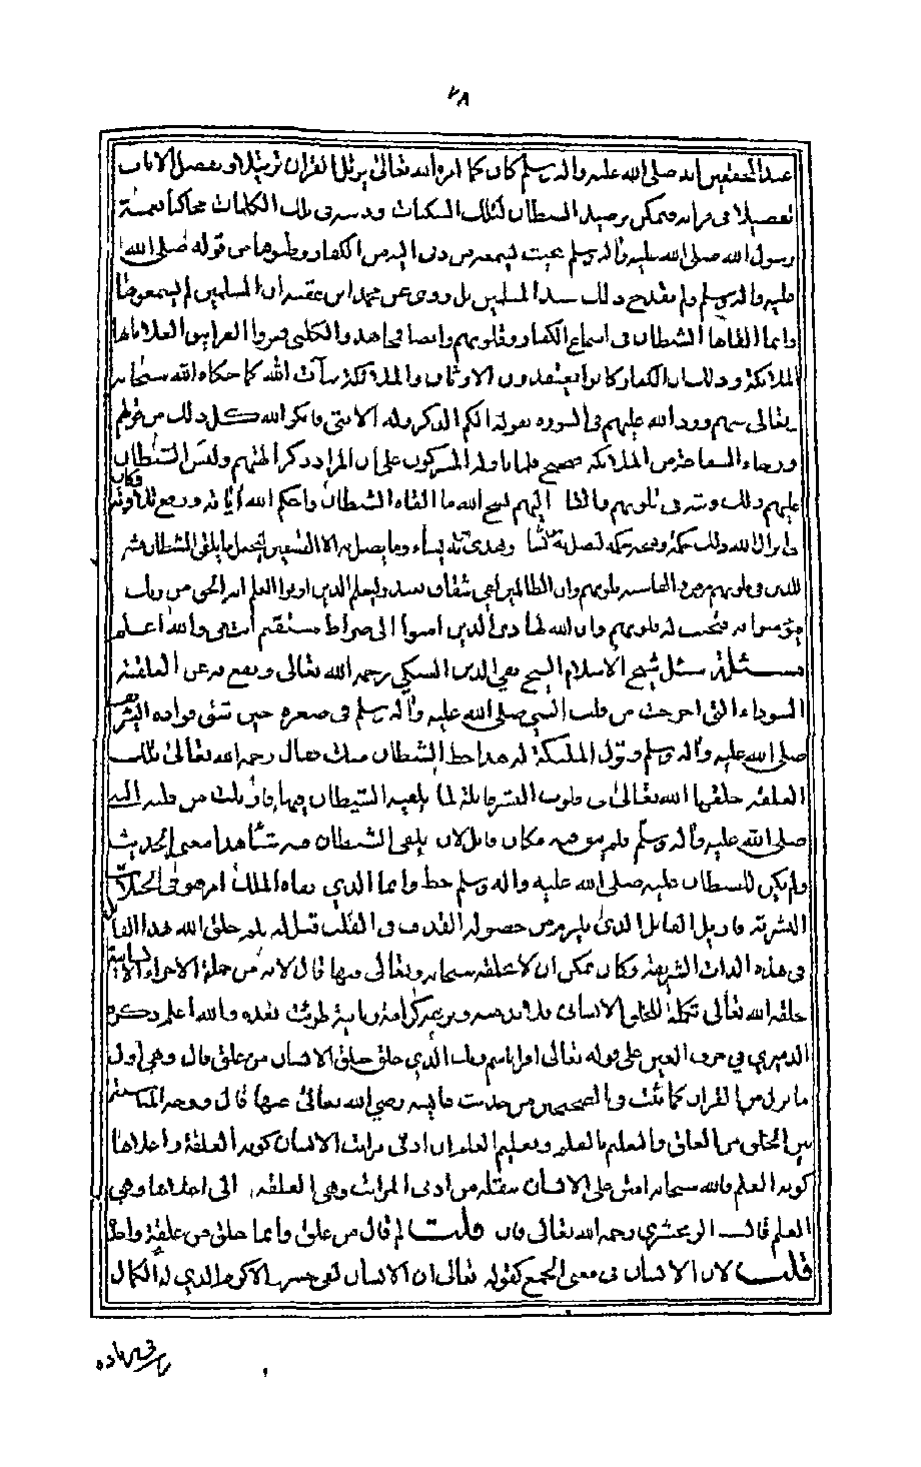 ٢٨
عند المحققين انه صلى الله عليه واله وسلم كان كما امره الله تعالى يرتل القران ترتيلا ويفصل الايات
تفصيلا فى قراته فيمكن ترصيد الشيطان لتلك السكتات ودسه فى تلك الكلمات محاكيا نغمة
رسول الله صلى الله عليه واله وسلم بحيث ليسمعه من دنى اليه من الكفار وظنوها من قوله صلى الله
عليه واله وسلم ولم يقدح ذلك عند المسلمين بل روى عن محمد ابن عقبه ان المسلمين لم يسمعوها
وانما القاها الشيطان فى اسماع الكفار وقلوبهم وايضا فمجاهد والكلبى فسروا الغرانيق العلا بانها
الملائكة وذلك ان الكفار كانوا يعتقدون الاوثان والملائكة بنات الله كما حكاه الله سبحانه
وتعالى عنهم ورد الله عليهم فى السوره بقوله الكم الذكر وله الانثى فانكر الله كل ذلك من قولهم
ورجاء الشفاعة من الملائكه صحيح فلما تاوله المشركون على ان المراد ذكر الهتهم ولبس الشيطان
عليهم ذلك وزينه فى قلوبهم والقا اليهم نسخ الله ما القاه الشيطان واحكم الله اياته ورفع تلاوته فكان
فى انزال الله ذلك حكمة وفى نسخه حكمه ليضل به من يشا ويهدى من يشاء وما يضل به الا الفاسقين ليجعل ما يلقى الشيطان فتنه
للذين فى قلوبهم مرض والقاسيه قلوبهم وان الظالمين لفى شقاق بعيد وليعلم الذين اوتوا العلم انه الحق من ربك
فيؤمنوا به فتخبت له قلوبهم وان الله لهادى الذين امنوا الى صراط مستقيم انتهى والله اعلم
مسئلة سئل شيخ الاسلام الشيخ تقى الدين السبكى رحمه الله تعالى ونفع به عن العلقة
السوداء التى اخرجت من قلب النبى صلى الله عليه واله وسلم فى صغره حين شق فواده الشريف
صلى الله عليه واله وسلم وقول الملئكة له هذا حظ الشيطان منك فقال رحمه الله تعالى تلك
العلقه خلقها الله تعالى فى قلوب البشر قابلة لما يلقيه الشيطان فيها فازيلت من قلبه
صلى الله عليه واله وسلم فلم يبق فيه مكان قابل لان يلقى الشيطان فيه شيأ هذا معنى الحديث
ولم يكن للشيطان عليه صلى الله عليه واله وسلم حظ وانما الذي نفاه الملك امر هو فى الجبلات
البشرية فازيل القابل الذي يلزم من حصوله القذف فى القلب قيل له فلم خلق الله هذا القابل
فى هذه الذات الشريفة وكان يمكن ان لا يخلقه سبحانه وتعالى فيها قال لانه من جملة الاجزاء الانسانية
خلقه الله تعالى تكملة للخلق الانسانى فلابد منه ونزعه كرامة ربانية طرئت بعده والله اعلم وذكر
الدميري فى حرف العين على قوله تعالى اقرا باسم ربك الذي خلق خلق الانسان من علق قال وهى اول
ما نزل من القران كما ثبت فى الصحيحين من حديث عايشه رضي الله تعالى عنها قال ووجه المناسبة
بين الخلق من العلق والتعليم بالقلم وتعليم العلم ان ادنى مراتب الانسان كونه العلقة واعلاها
كونه العلم فالله سبحانه امتن على الانسان بنقله من ادنى المراتب وهى العلقه الى اعلاها وهى
العلم قال الزمخشري رحمه الله تعالى فان قلت لم قال من علق وانما خلق من علقة واحدة
قلت لان الانسان فى معنى الجمع كقوله تعالى ان الانسان لفى خسر الاكرم الذي له الكمال